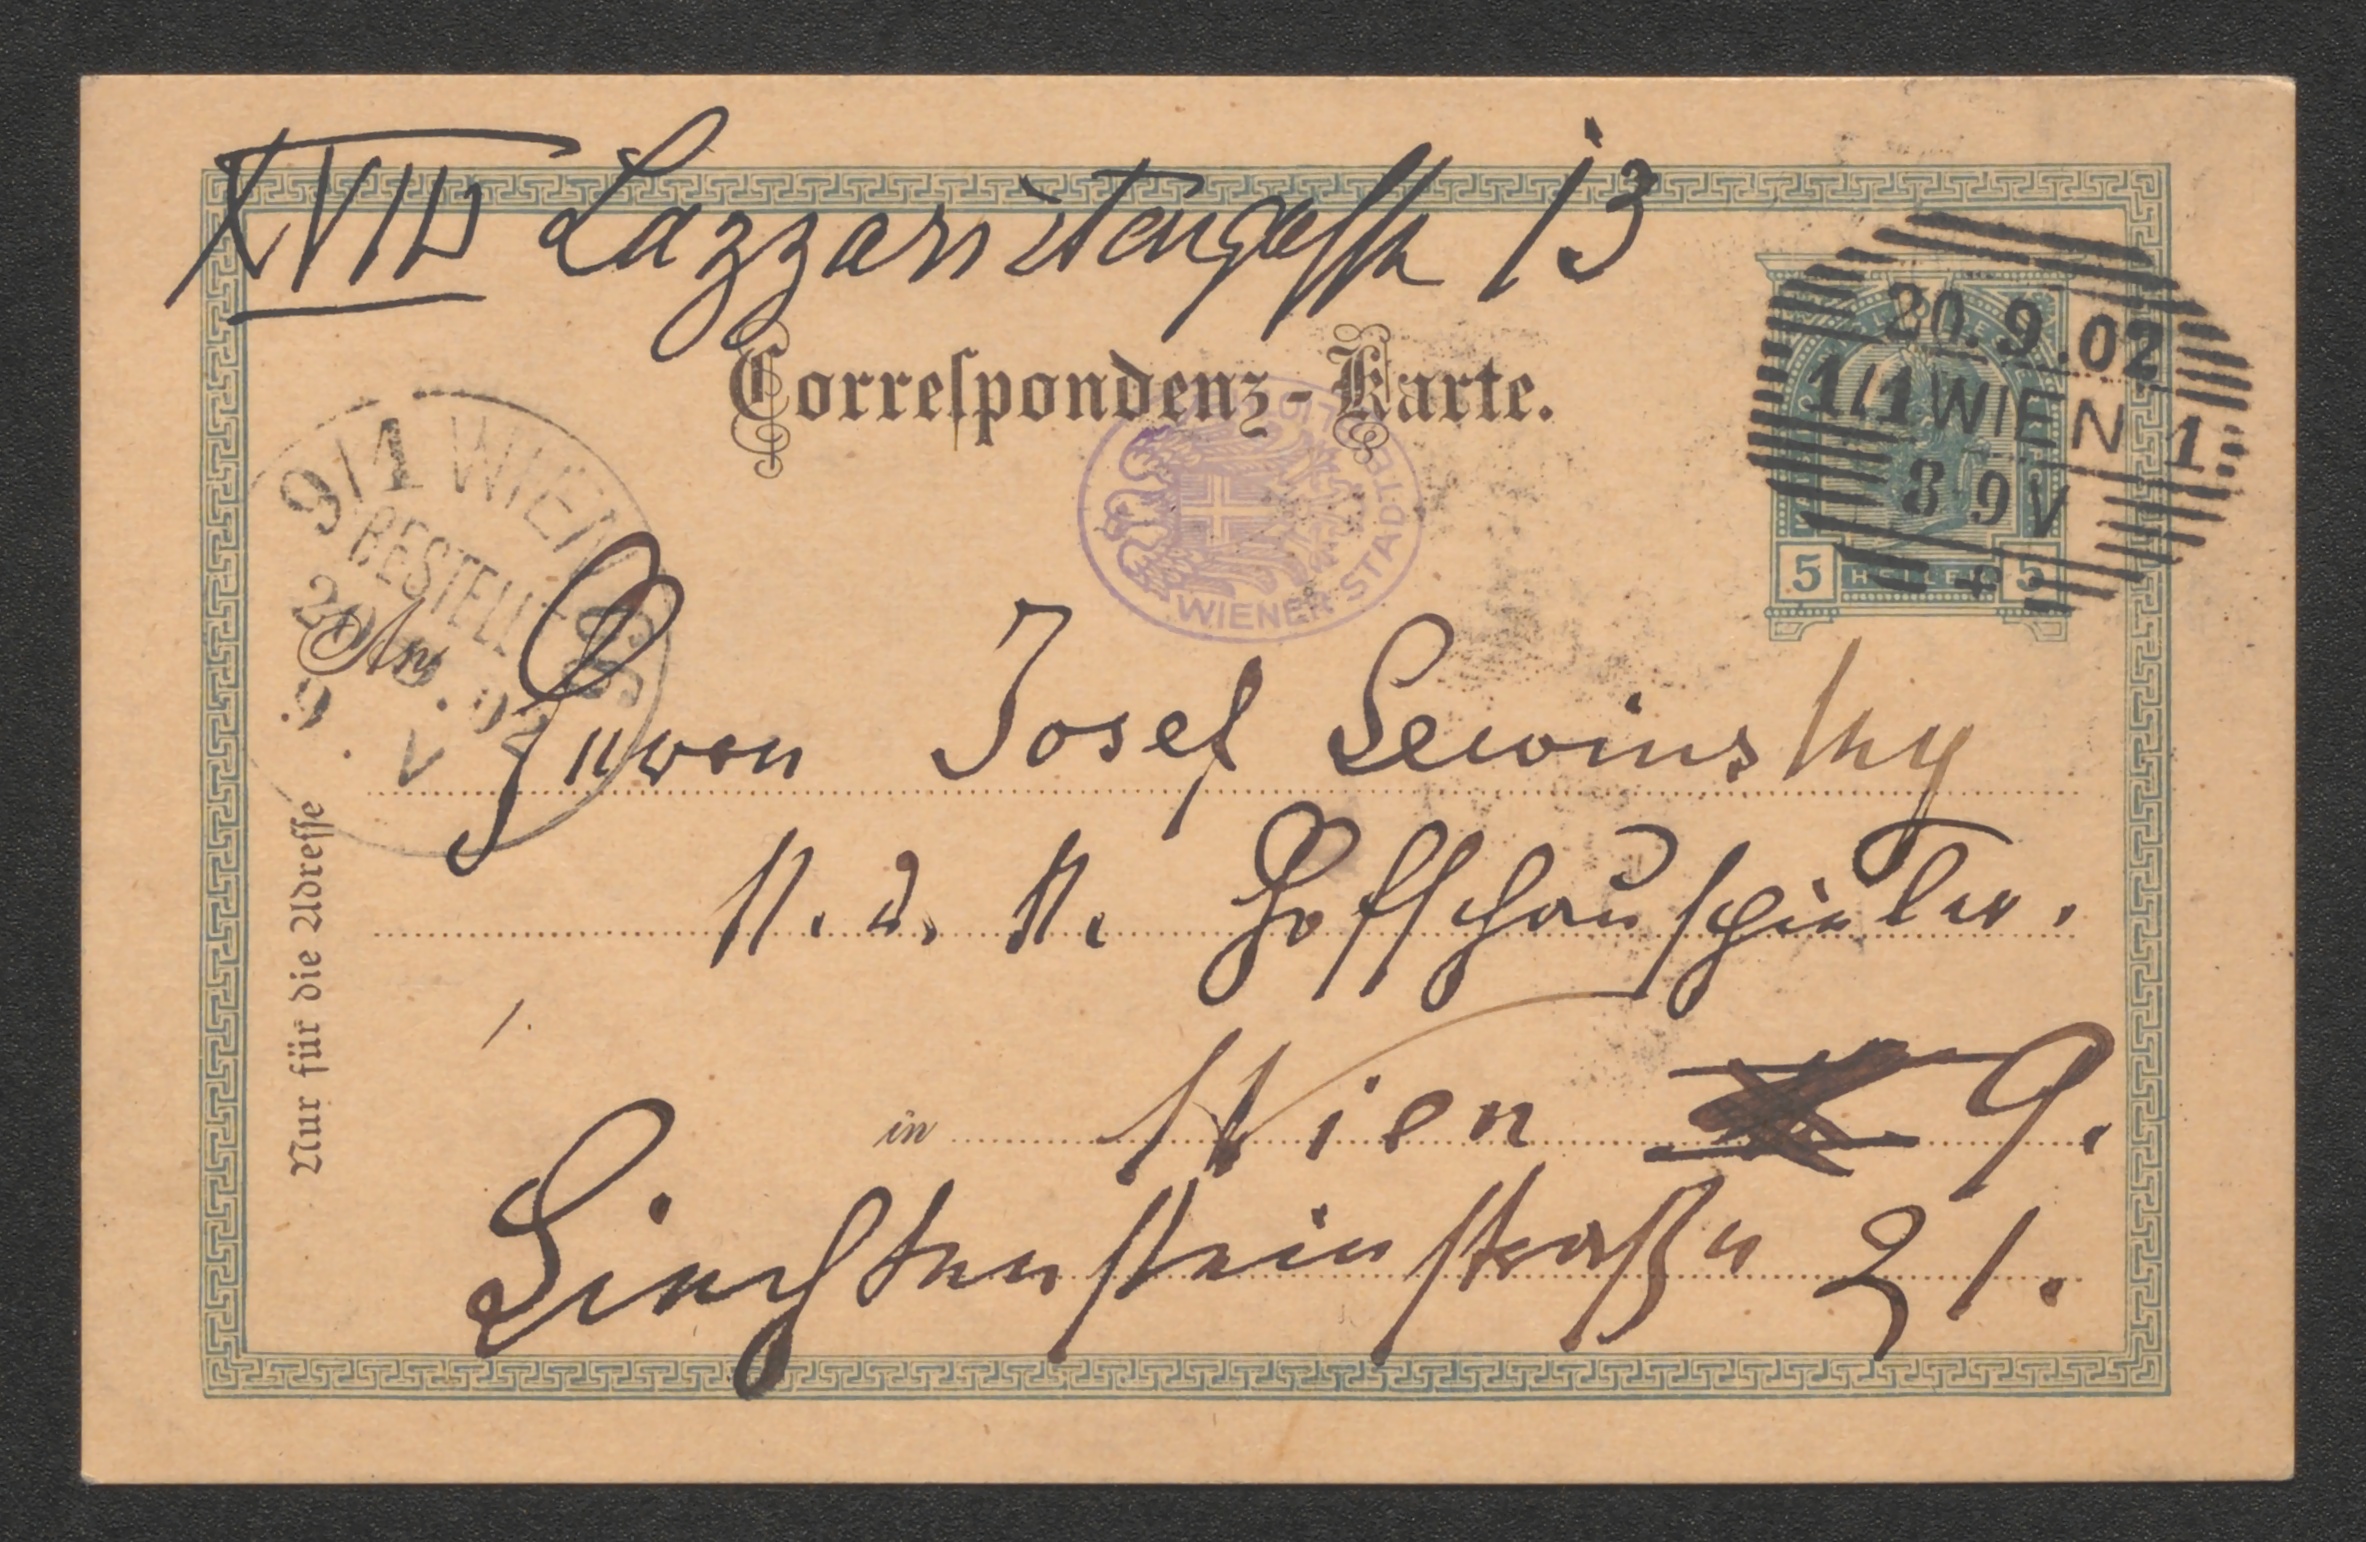 XVIII Lazzaristengasse 13
Correspondenz-Karte.
20.9.02
1/1 WIEN 1.
8-9V
5 HELLER 5
9/1 WIEN
BESTELLT
20. 9. 02
9. V
WIENER STADT
An
Herrn Josef Lewinsky
K. u. K. Hofschauspieler.
in Wien 9.
Liechtensteinstraße 21.
Nur für die Adresse